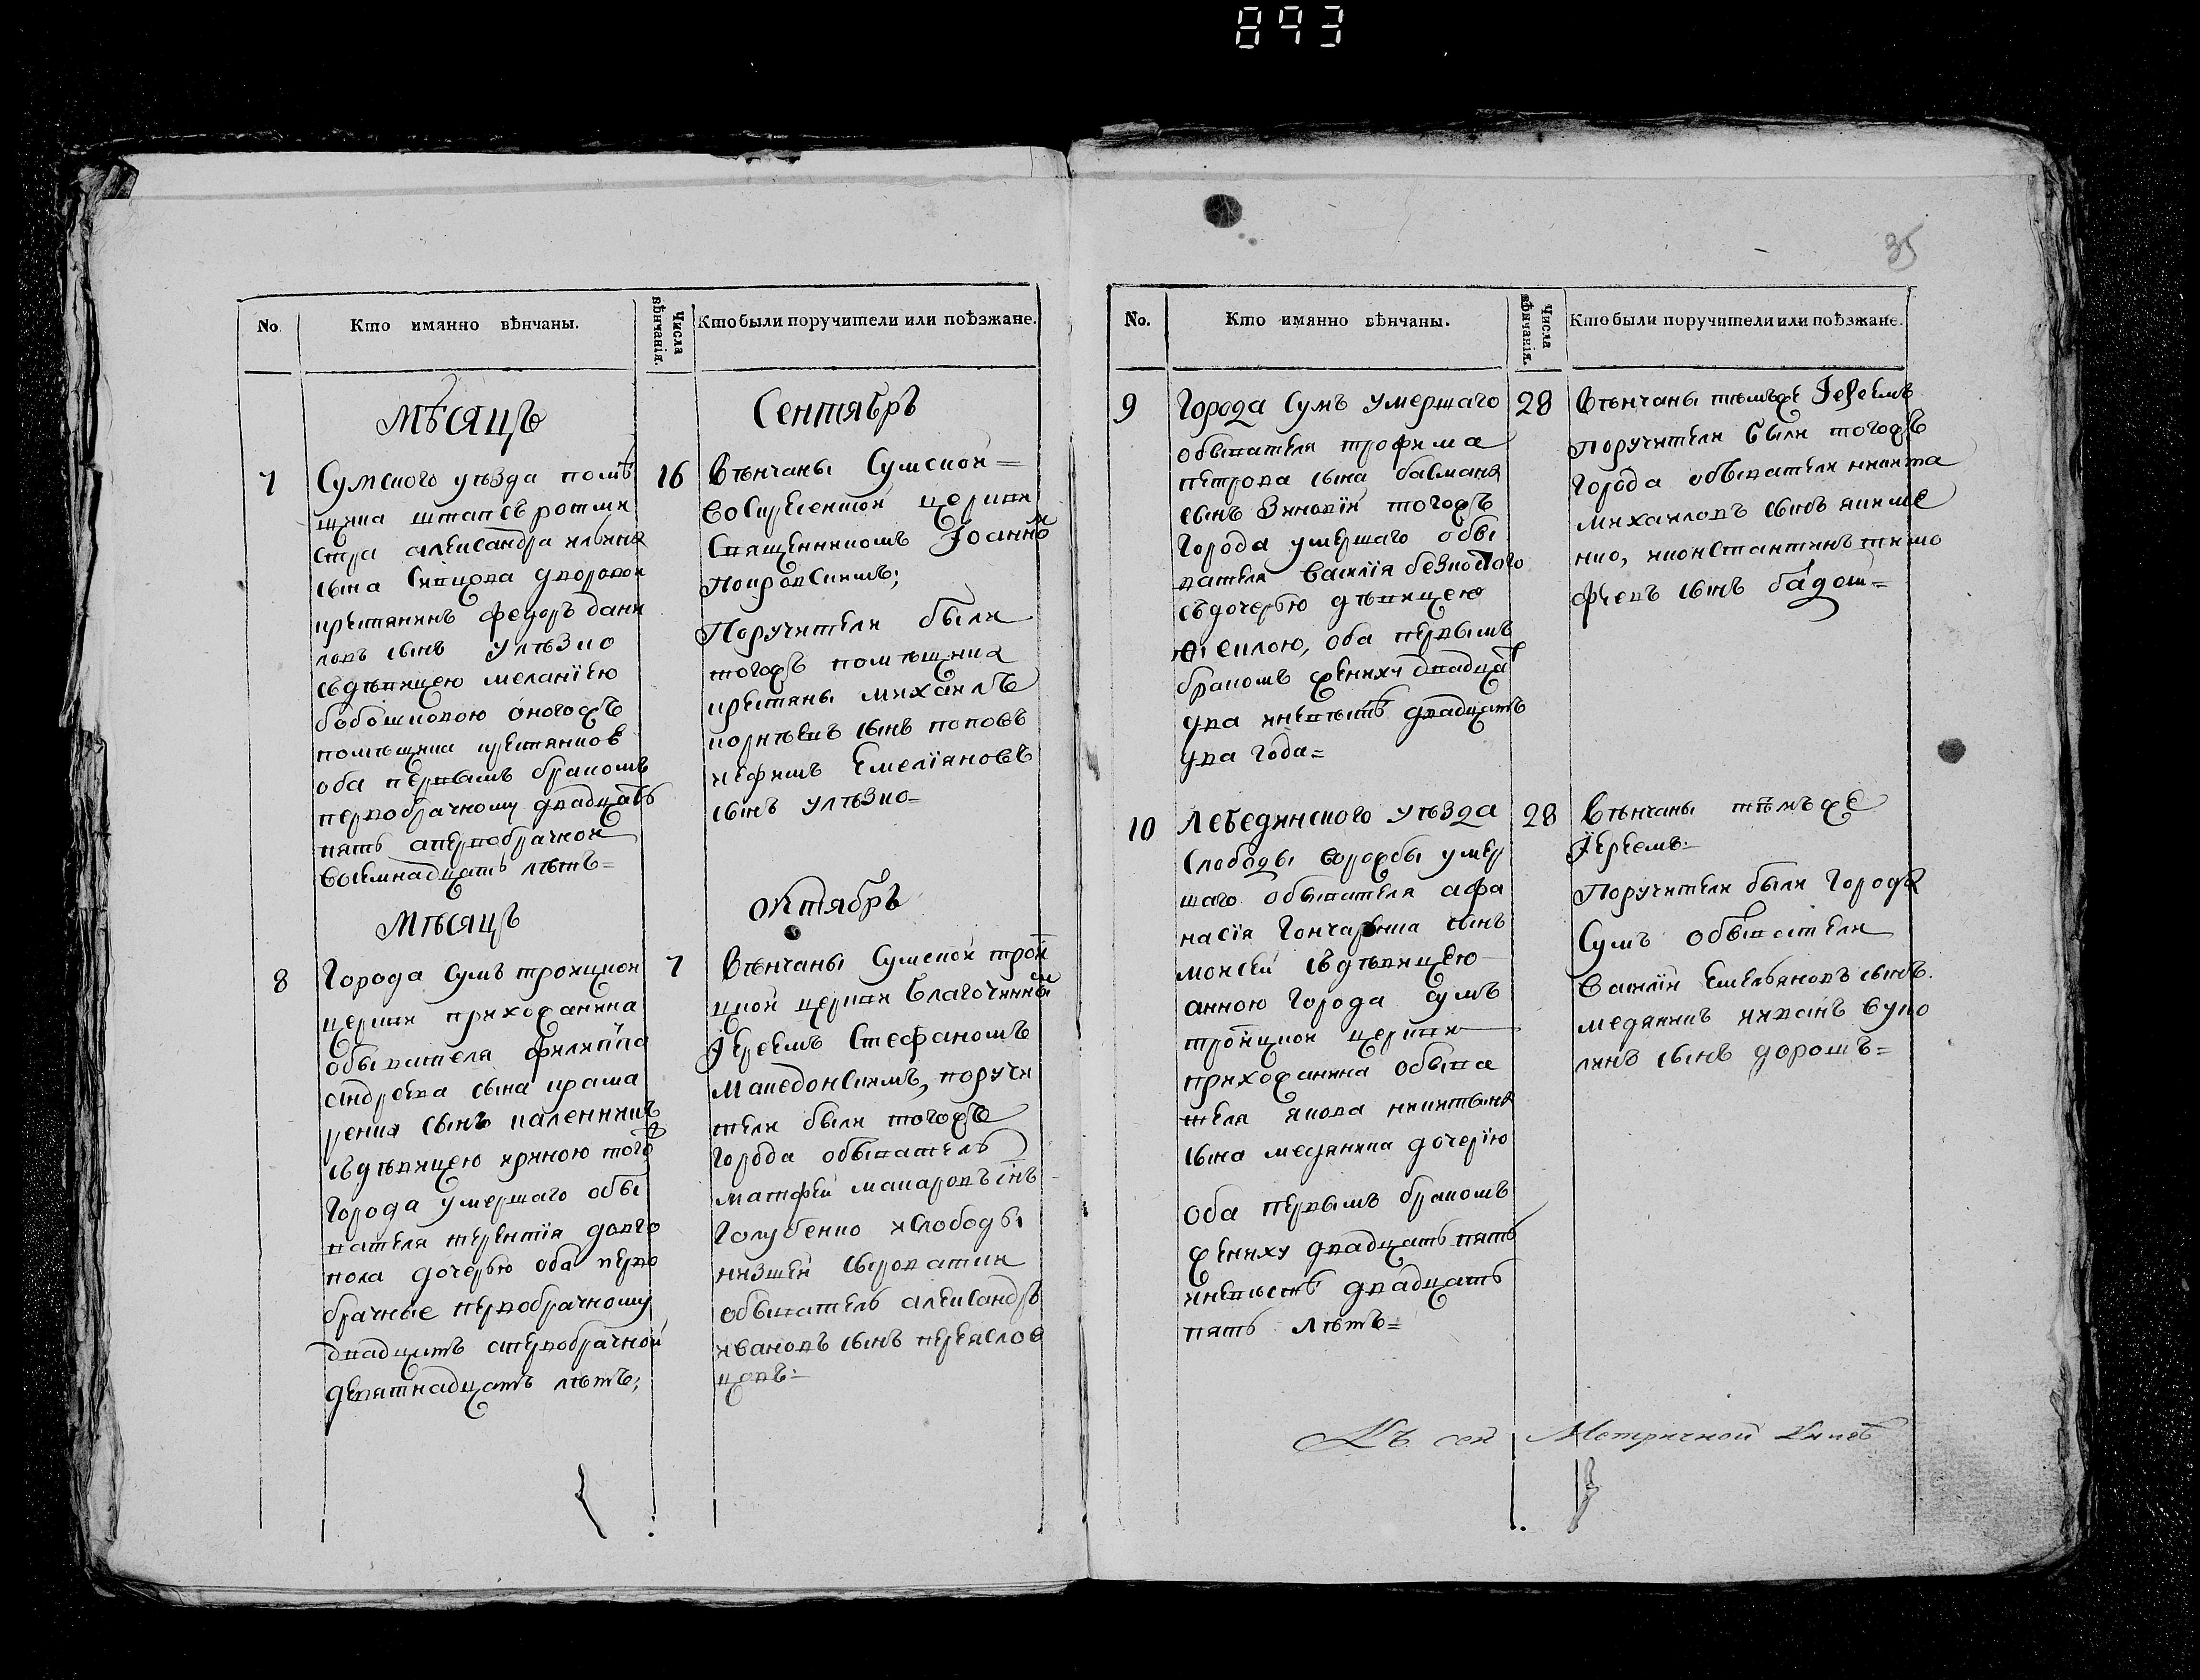 893
35
No. Кто имянно вѣнчаны. Числа вѣнчанія. Кто были поручители или поѣзжане.
Мѣсяцъ
Сентябръ
7
Сумского уѣзда помѣ
щика штапсъ ротми
стра александра ильина
сына дворовой
крестянинъ федоръ дани
ловъ сынъ улѣзко
съдѣвицею меланіею
бобошковою оногожъ
помѣщика крестянков
оба первымъ бракомъ
первобрачному двадцать
пять апервобрачной
восемнадцать лѣтъ=
16
Вѣнчаны Сумской=
воскресенской церкви
Священникомъ Іоанномъ
покровскимъ;
Поручители были
тогожъ помѣщика
крестяны михаилъ
корнѣевъ сынъ поповъ
иефимъ Емеліяновъ
сынъ улѣзко=
Мѣсяцъ
октябръ
8
Города Сумъ троицкой
церкви прихожанина
обывателя филиппа
андреева сына крама
ренка сынъ каленикъ
съдѣвицею ириною тогожъ
города умершаго обы
вателя терентія долго
пола дочерью оба перво
брачные первобрачному
двадцать апервобрачной
девятнадцать лѣтъ;
7
Вѣнчаны Сумской трои
цкой церкви благочинным
Іереемъ Стефаномъ
македонскимъ, поручи
тели были тогожъ
города обыватель
матфей макаровъ снъ
голубенко ислободы
низшей сыроватки
обыватель александръ
ивановъ сынъ переяслов
цовъ=
No. Кто имянно вѣнчаны. Числа вѣнчанія. Кто были поручители или поѣзжане.
9
Города Сумъ умершаго
обывателя трофима
петрова сына басмана
сынъ Зиновій тогожъ
города умершаго обы
вателя василія безкостого
съдочерью дѣвицею
оба первымъ
бракомъ жениху двадцат
два иневѣстѣ двадцать
два года=
28
Вѣнчаны тѣмъже Іереемъ
поручители были тогожъ
города обыватели никита
михаиловъ сынъ якиме
нко, иконстантинъ тимо
феевъ сынъ =
10
Лебединского уѣзда
слободы ворожбы умер
шаго обывателя афа
насія гончаренка сынъ
моисей съдѣвицею
анною города Сумъ
троицкой церкви
прихожанина обыва
теля якова никитина
сына медяника дочерію
оба первымъ бракомъ
жениху двадцать пять
иневѣстѣ двадцать
пять лѣтъ=
28
Вѣнчаны тѣмъже
Іереемъ=
Поручители были города
Сумъ обыватели
василій Емельяновъ сынъ
медяникъ ииванъ вуко
ловъ сынъ дорошъ=
Къ сей Метричной Книгѣ